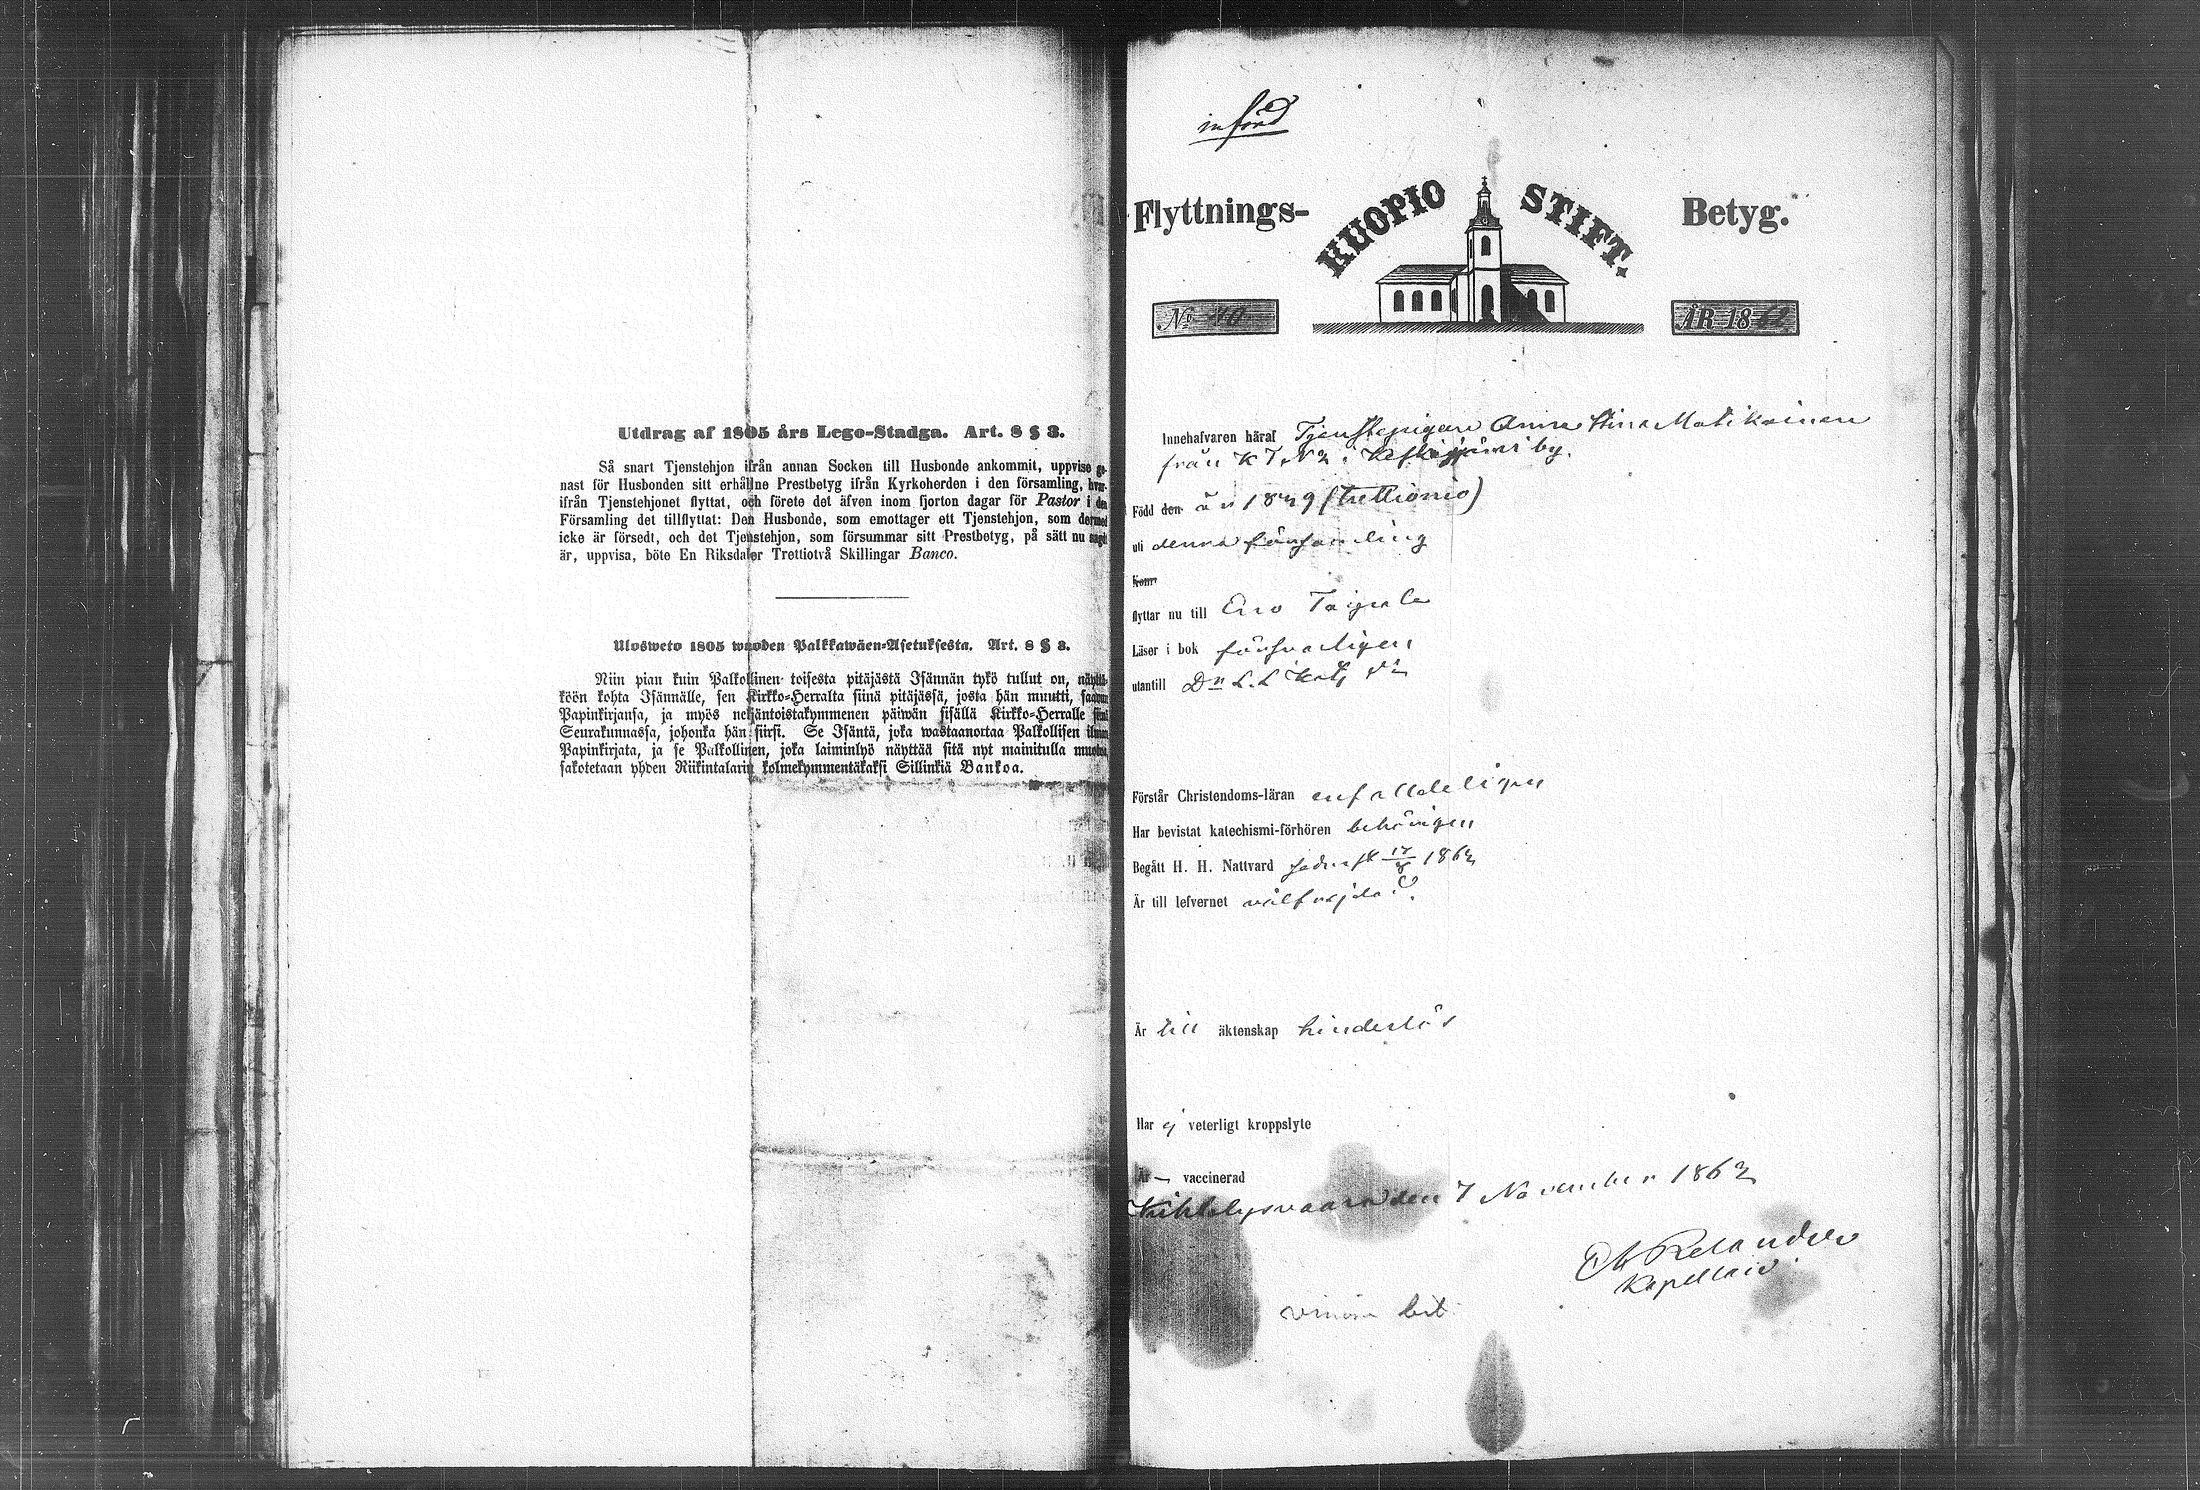 Utdrag af 1805 års Lego-Stadga. Art. 8 § 3.
Så snart Tjenstehjon ifrån annan Socken till Husbonde ankommit, uppvise ge-
nast för Husbonden sitt erhållne Prestbetyg ifrån Kyrkoherden i den församling, hvar-
ifrån Tjenstehjonet flyttat, och förete det äfven inom fjorton dagar för Pastor i den
Församling det tillflyttat: Den Husbonde, som emottager ett Tjenstehjon, som dermed
icke är försedt, och det Tjenstehjon, som försummar sitt Prestbetyg, på sätt nu sagdt
är, uppvisa, böte En Riksdaler Trettiotvå Skillingar Banco.
Ulosweto 1805 wuoden Palkkawäen-Asetuksesta. Art. 8 § 3.
Niin pian kuin Palkollinen toisesta pitäjästä Isännän tykö tullut on, näyttä-
köön kohta Isännälle, sen Kirkko-Herralta siinä pitäjässä, josta hän muutti, saadun
Papinkirjansa, ja myös neljäntoistakymmenen päiwän sisällä Kirkko-Herralle siinä
Seurakunnassa, johonka hän siirsi. Se Isäntä, joka wastaanottaa Palkollisen ilman
Papinkirjata, ja se Palkollinen, joka laiminlyö näyttää sitä nyt mainitulla muotoa,
sakotetaan yhden Riikintalarin kolmekymmentäkaksi Sillinkiä Bankoa.
införd
Flyttnings- KUOPIO STIFT. Betyg.
No ÅR 1862
Innehafvaren häraf Tjenstepigan Anna Stina Matikainen
från K T N 2 i Keskijärvi by.
Född den år 1839 (trettionio)
uti denna församling
Konr
flyttar nu till Eno Taipale
Läser i bok försvarligen
utantill Dn L. L Kat
Förstår Christendoms-läran enfalldeligen
Har bevistat katechismi-förhören behörigen
Begått H. H. Nattvard sednast 17/8 1862
Är till lefvernet välfrejdad.
Är till äktenskap hinderlös
Har ej veterligt kroppslyte
Är — vaccinerad
Kihtelysvaara den 7 November 1862
Relander
Kapellan.